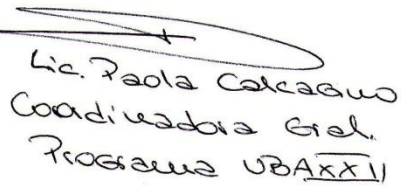 Lic. Paola Calcagno
Coordinadora Gral.
Programa UBAXXII